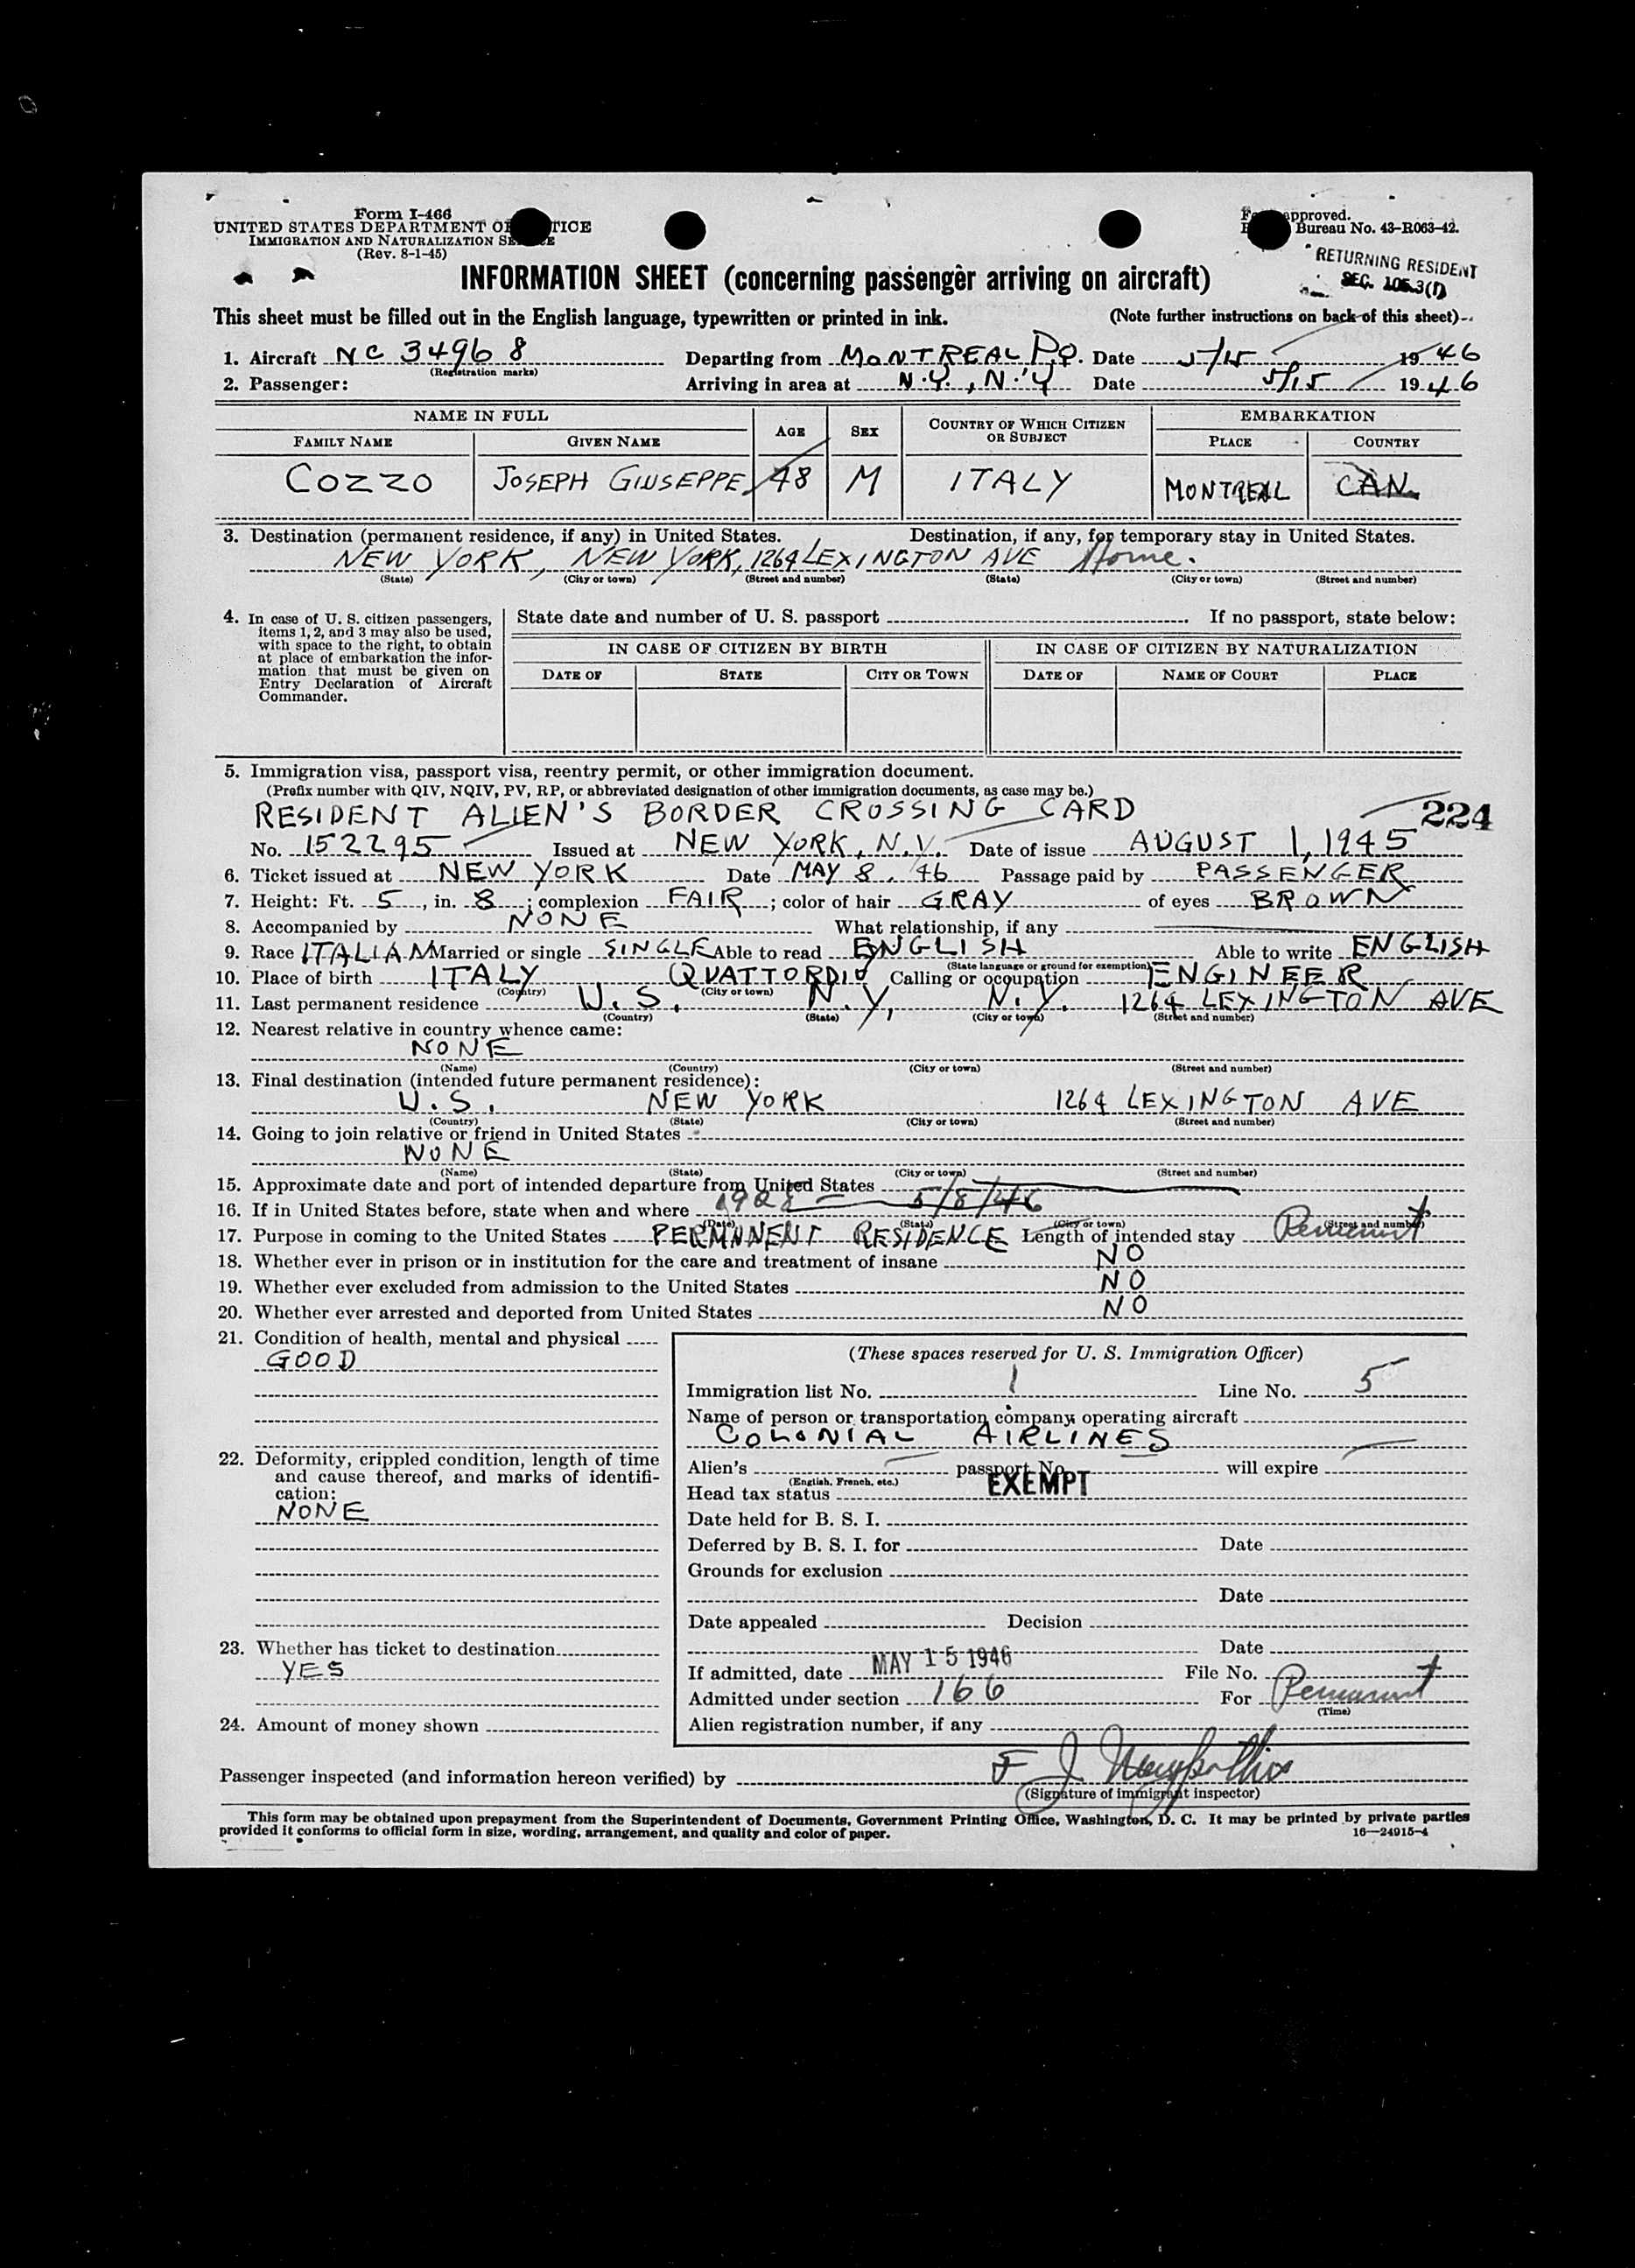 Form I-466
UNITED STATES DEPARTMENT OF JUSTICE
IMMIGRATION AND NATURALIZATION SERVICE
(Rev. 8-1-45)
approved.
Bureau No. 43-R063-42.
RETURNING RESIDENT
SEC. 105.3(f)
INFORMATION SHEET (concerning passenger arriving on aircraft)
This sheet must be filled out in the English language, typewritten or printed in ink. (Note further instructions on back of this sheet)
1. Aircraft NC 34968 Departing from MONTREAL P.Q. Date 5/15 1946
(Registration marks)
2. Passenger: Arriving in area at N.Y., N.Y Date 5/15 1946
NAME IN FULL AGE SEX COUNTRY OF WHICH CITIZEN OR SUBJECT EMBARKATION
FAMILY NAME GIVEN NAME PLACE COUNTRY
COZZO JOSEPH GIUSEPPE 48 M ITALY MONTREAL CAN.
3. Destination (permanent residence, if any) in United States. Destination, if any, for temporary stay in United States.
NEW YORK, NEW YORK, 1264 LEXINGTON AVE Home.
(State) (City or town) (Street and number) (State) (City or town) (Street and number)
4. In case of U. S. citizen passengers, items 1, 2, and 3 may also be used, with space to the right, to obtain at place of embarkation the information that must be given on Entry Declaration of Aircraft Commander.
State date and number of U. S. passport If no passport, state below:
IN CASE OF CITIZEN BY BIRTH IN CASE OF CITIZEN BY NATURALIZATION
DATE OF STATE CITY OR TOWN DATE OF NAME OF COURT PLACE
5. Immigration visa, passport visa, reentry permit, or other immigration document.
(Prefix number with QIV, NQIV, PV, RP, or abbreviated designation of other immigration documents, as case may be.)
RESIDENT ALIEN'S BORDER CROSSING CARD 224
No. 152295 Issued at NEW YORK, N.Y. Date of issue AUGUST 1, 1945
6. Ticket issued at NEW YORK Date MAY 8, 46 Passage paid by PASSENGER
7. Height: Ft. 5, in. 8; complexion FAIR; color of hair GRAY of eyes BROWN
8. Accompanied by NONE What relationship, if any
9. Race ITALIAN Married or single SINGLE Able to read ENGLISH Able to write ENGLISH
(State language or ground for exemption)
10. Place of birth ITALY QUATTORDIO Calling or occupation ENGINEER
(Country) (City or town)
11. Last permanent residence U.S. N.Y, N.Y. 1264 LEXINGTON AVE
(Country) (State) (City or town) (Street and number)
12. Nearest relative in country whence came:
NONE
(Name) (Country) (City or town) (Street and number)
13. Final destination (intended future permanent residence):
U.S. NEW YORK 1264 LEXINGTON AVE
(Country) (State) (City or town) (Street and number)
14. Going to join relative or friend in United States
NONE
(Name) (State) (City or town) (Street and number)
15. Approximate date and port of intended departure from United States
16. If in United States before, state when and where 1928 — 5/8/46
(Date) (State) (City or town) (Street and number)
17. Purpose in coming to the United States PERMANENT RESIDENCE Length of intended stay Permanent
18. Whether ever in prison or in institution for the care and treatment of insane NO
19. Whether ever excluded from admission to the United States NO
20. Whether ever arrested and deported from United States NO
21. Condition of health, mental and physical
GOOD
22. Deformity, crippled condition, length of time and cause thereof, and marks of identification:
NONE
23. Whether has ticket to destination
YES
24. Amount of money shown
(These spaces reserved for U. S. Immigration Officer)
Immigration list No. 1 Line No. 5
Name of person or transportation company operating aircraft
COLONIAL AIRLINES
Alien's passport No. will expire
(English, French, etc.)
Head tax status EXEMPT
Date held for B. S. I.
Deferred by B. S. I. for Date
Grounds for exclusion
Date
Date appealed Decision
Date
If admitted, date MAY 15 1946 File No.
Admitted under section 166 For Permanent
(Time)
Alien registration number, if any
Passenger inspected (and information hereon verified) by F J
(Signature of immigrant inspector)
This form may be obtained upon prepayment from the Superintendent of Documents, Government Printing Office, Washington, D. C. It may be printed by private parties
provided it conforms to official form in size, wording, arrangement, and quality and color of paper. 16—24915-4